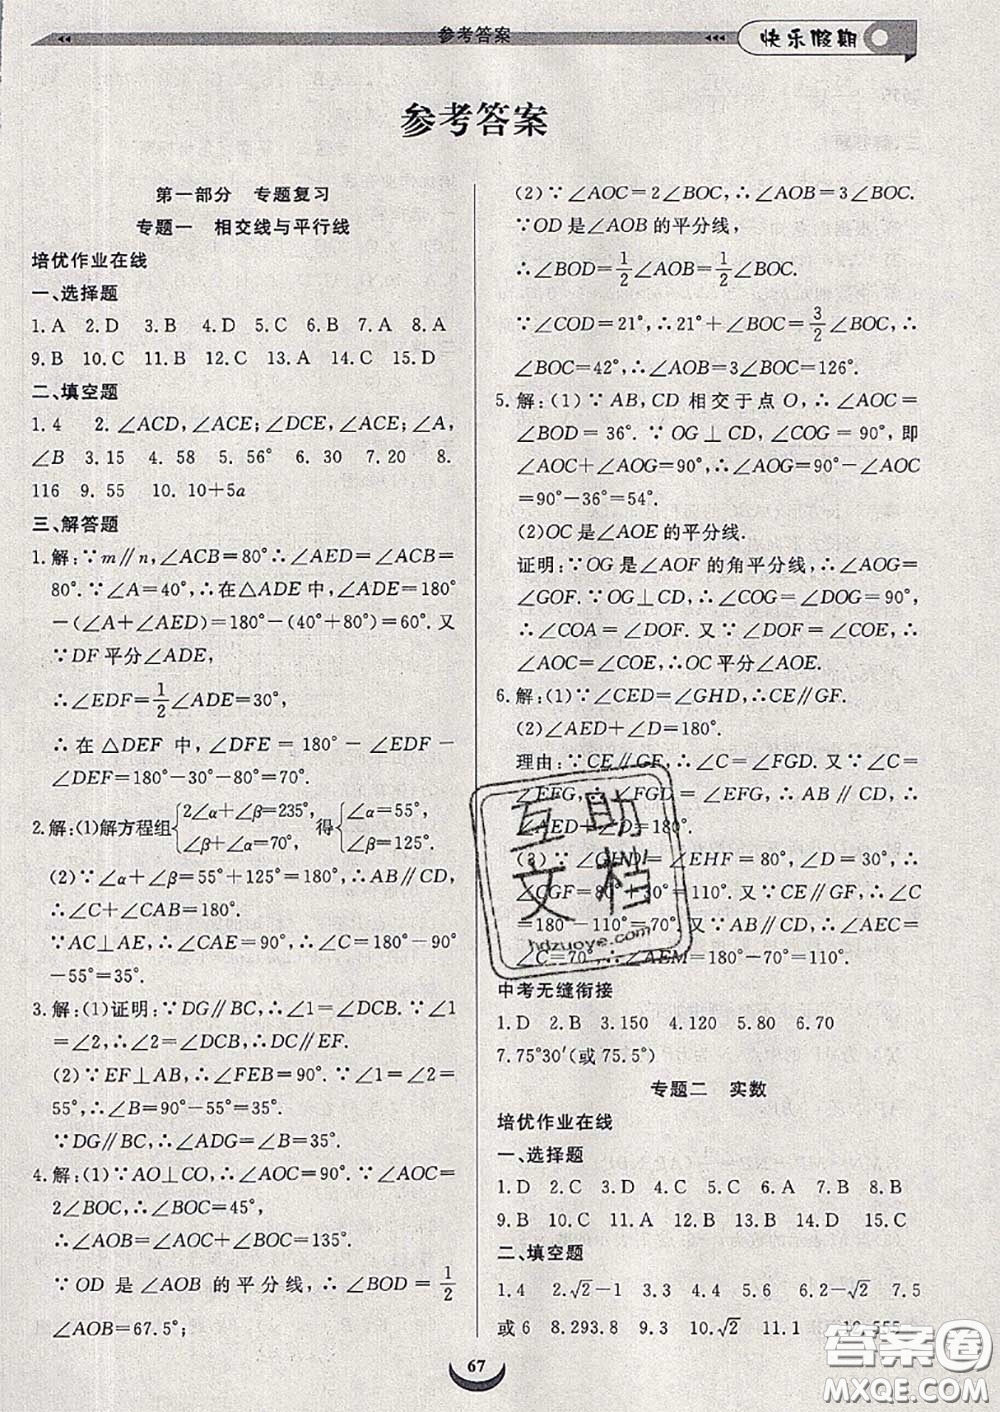 参考答案
快乐假期
参考答案
第一部分 专题复习
专题一 相交线与平行线
培优作业在线
一、选择题
1. A 2. D 3. B 4. D 5. C 6. B 7. A 8. A
9. B 10. C 11. B 12. C 13. A 14. C 15. D
二、填空题
1. 4 2. ∠ACD,∠ACE;∠DCE,∠ACE;∠A,
∠B 3. 15 4. 58 5. 56° 6. 30 7. 20 8.
116 9. 55 10. 10+5a
三、解答题
1. 解:∵m∥n,∠ACB=80°∴∠AED=∠ACB=
80°.∵∠A=40°,∴在△ADE中,∠ADE=180°
-(∠A+∠AED)=180°-(40°+80°)=60°.又
∵DF平分∠ADE,
∴∠EDF=1/2∠ADE=30°,
∴在△DEF中,∠DFE=180°-∠EDF-
∠DEF=180°-30°-80°=70°.
2. 解:(1)解方程组{2∠α+∠β=235°, ∠β+∠α=70°, 得{∠α=55°, ∠β=125°.
(2)∵∠α+∠β=55°+125°=180°,∴AB∥CD,
∴∠C+∠CAB=180°.
∵AC⊥AE,∴∠CAE=90°,∴∠C=180°-90°
-55°=35°.
3. 解:(1)证明:∵DG∥BC,∴∠1=∠DCB.∵∠1
=∠2,∴∠2=∠DCB,∴DC∥EF.
(2)∵EF⊥AB,∴∠FEB=90°.∵∠1=∠2=
55°,∴∠B=90°-55°=35°.
∵DG∥BC,∴∠ADG=∠B=35°.
4. 解:(1)∵AO⊥CO,∴∠AOC=90°.∵∠AOC=
2∠BOC,∴∠BOC=45°,
∴∠AOB=∠AOC+∠BOC=135°.
∵OD是∠AOB的平分线,∴∠BOD=1/2
∠AOB=67.5°;
(2)∵∠AOC=2∠BOC,∴∠AOB=3∠BOC.
∵OD是∠AOB的平分线,
∴∠BOD=1/2∠AOB=3/2∠BOC.
∵∠COD=21°,∴21°+∠BOC=3/2∠BOC,∴
∠BOC=42°,∴∠AOB=3∠BOC=126°.
5. 解:(1)∵AB,CD相交于点O,∴∠AOC=
∠BOD=36°.∵OG⊥CD,∴∠COG=90°,即
∠AOC+∠AOG=90°,∴∠AOG=90°-∠AOC
=90°-36°=54°.
(2)OC是∠AOE的平分线.
证明:∵OG是∠AOF的角平分线,∴∠AOG=
∠GOF.∵OG⊥CD,∴∠COG=∠DOG=90°,
∴∠COA=∠DOF.又∵∠DOF=∠COE,∴
∠AOC=∠COE,∴OC平分∠AOE.
6. 解:(1)∵∠CED=∠GHD,∴CE∥GF.
(2)∠AED+∠D=180°.
理由:∵CE∥GF,∴∠C=∠FGD.又∵∠C=
∠EFG,∴∠FGD=∠EFG,∴AB∥CD,∴
∠AED+∠D=180°.
(3)∵∠GHD=∠EHF=80°,∠D=30°,∴
∠CGF=80°+30°=110°.又∵CE∥GF,∴∠C
=180°-110°=70°.又∵AB∥CD,∴∠AEC=
∠C=70°,∴∠AEM=180°-70°=110°.
中考无缝衔接
1. D 2. B 3. 150 4. 120 5. 80 6. 70
7. 75°30′(或75.5°)
专题二 实数
培优作业在线
一、选择题
1. D 2. C 3. D 4. C 5. A 6. D 7. B 8. B
9. B 10. C 11. A 12. B 13. D 14. D 15. C
二、填空题
1. 4 2. √2-1 3. 3 4. < 5. 6 6. 2-√2 7. 5
或6 8. 293.8 9. 3 10. √2 11. 1 12. 555
67
互助文档
hdzuoye.com
答案圈
MXQE.COM